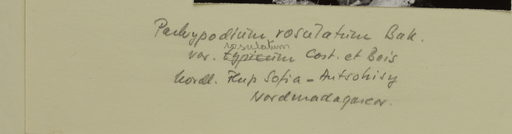 Pachypodium rosulatum Bak.
rosulatum
var. typicum Cost. et Bois
nördl. Fluß Sofia - Antsohihy
Nordmadagascar.